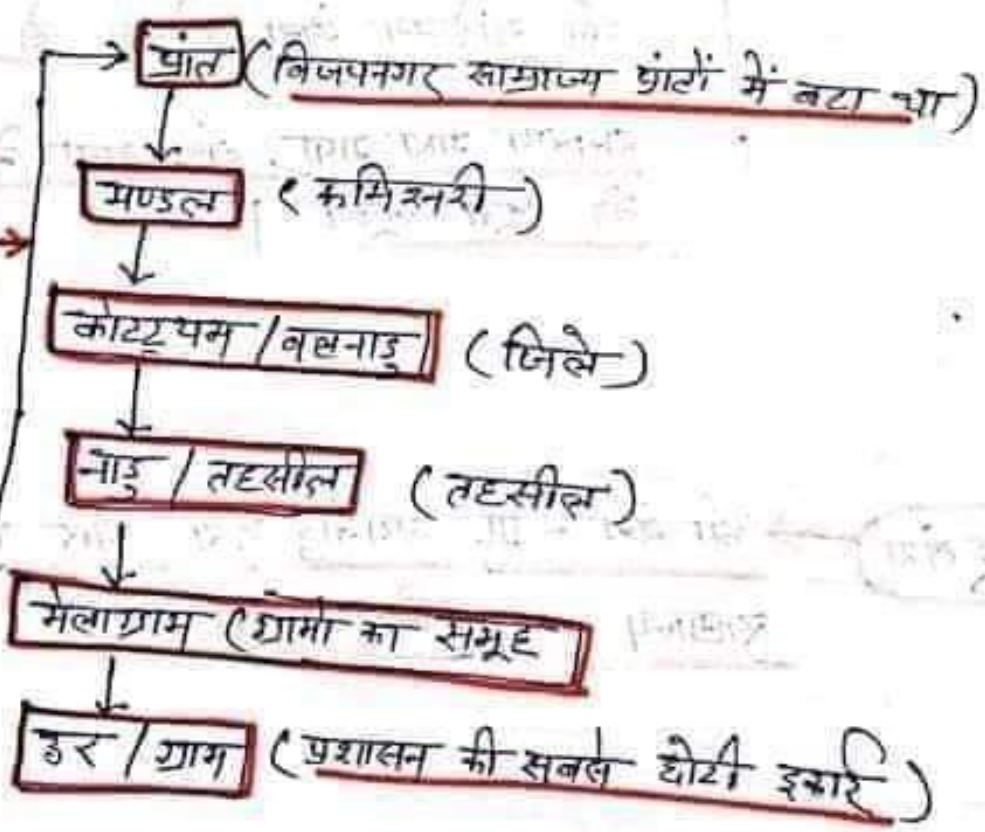 प्रांत (विजयनगर साम्राज्य प्रांटों में बटा था)
मण्डल (कमिश्नरी)
कोट्टयम / वलनाडु (जिले)
नाडु / तहसील (तहसील)
मेलाग्राम (ग्रामो का समूह
डर / ग्राम (प्रशासन की सबसे छोटी इकाई)